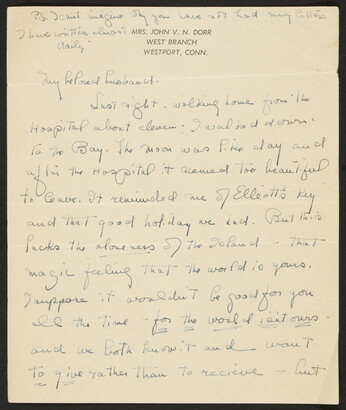 P.S. I can't imagine why you have not had my letters
I have written almost
daily
MRS. JOHN V. N. DORR
WEST BRANCH
WESTPORT, CONN.
My beloved husband.
Last night - walking home from the
Hospital about eleven - I walked down -
to the Bay. The moon was like day and
after the Hospital it seemed too beautiful
to leave. It reminded me of Elliott's Key
and that good holiday we had. But this
lacks the aloneness of the Island - that
magic feeling that the world is yours.
I suppose it wouldn't be good for you
all the time - for the world isn't ours -
and we both know it - and want
to give rather than to recieve - but